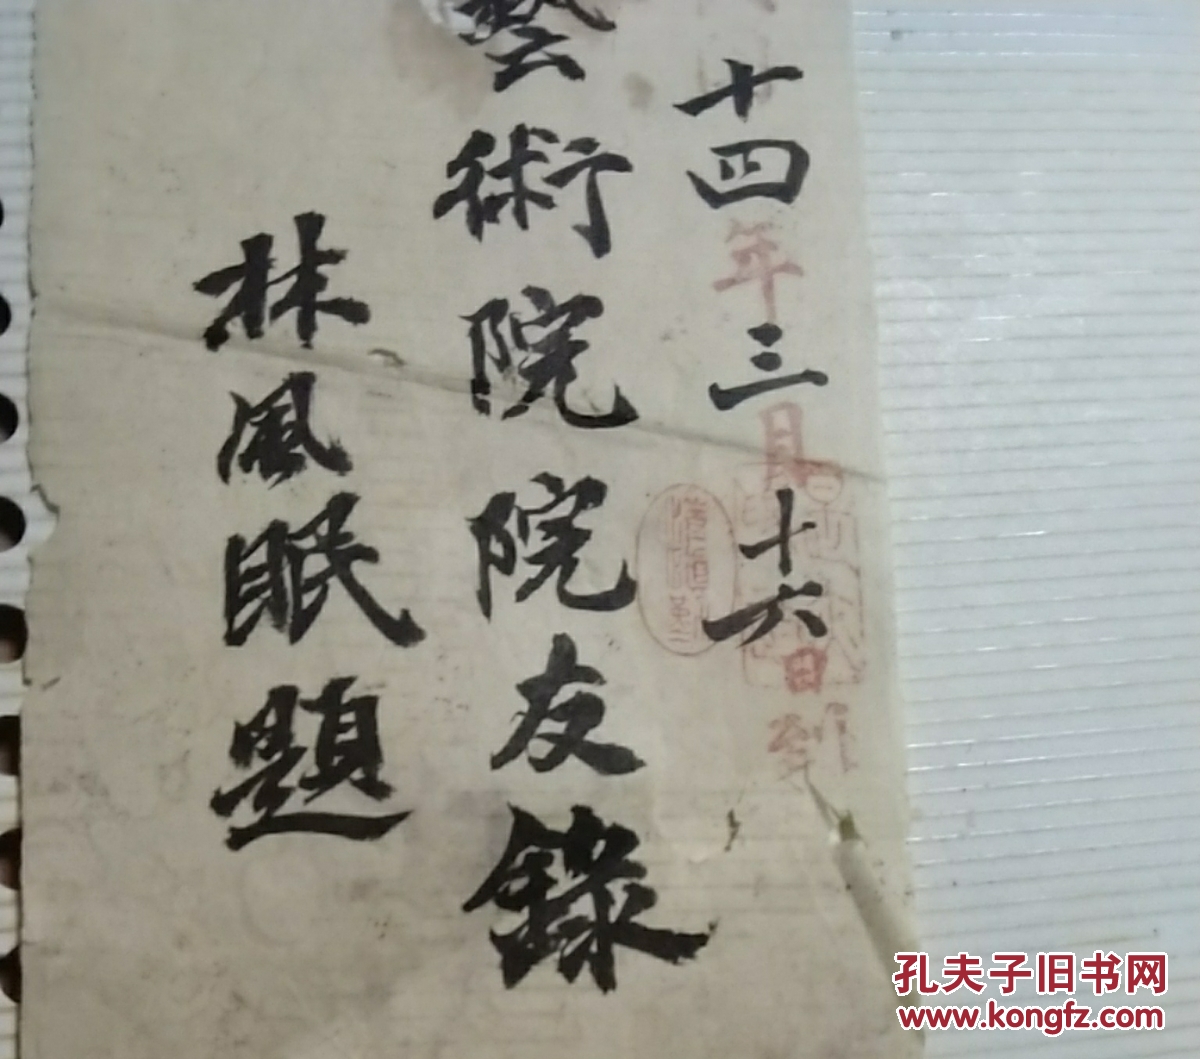 十四年三月十六日到
藝術院院友錄
林風眠題
孔夫子旧书网
www.kongfz.com